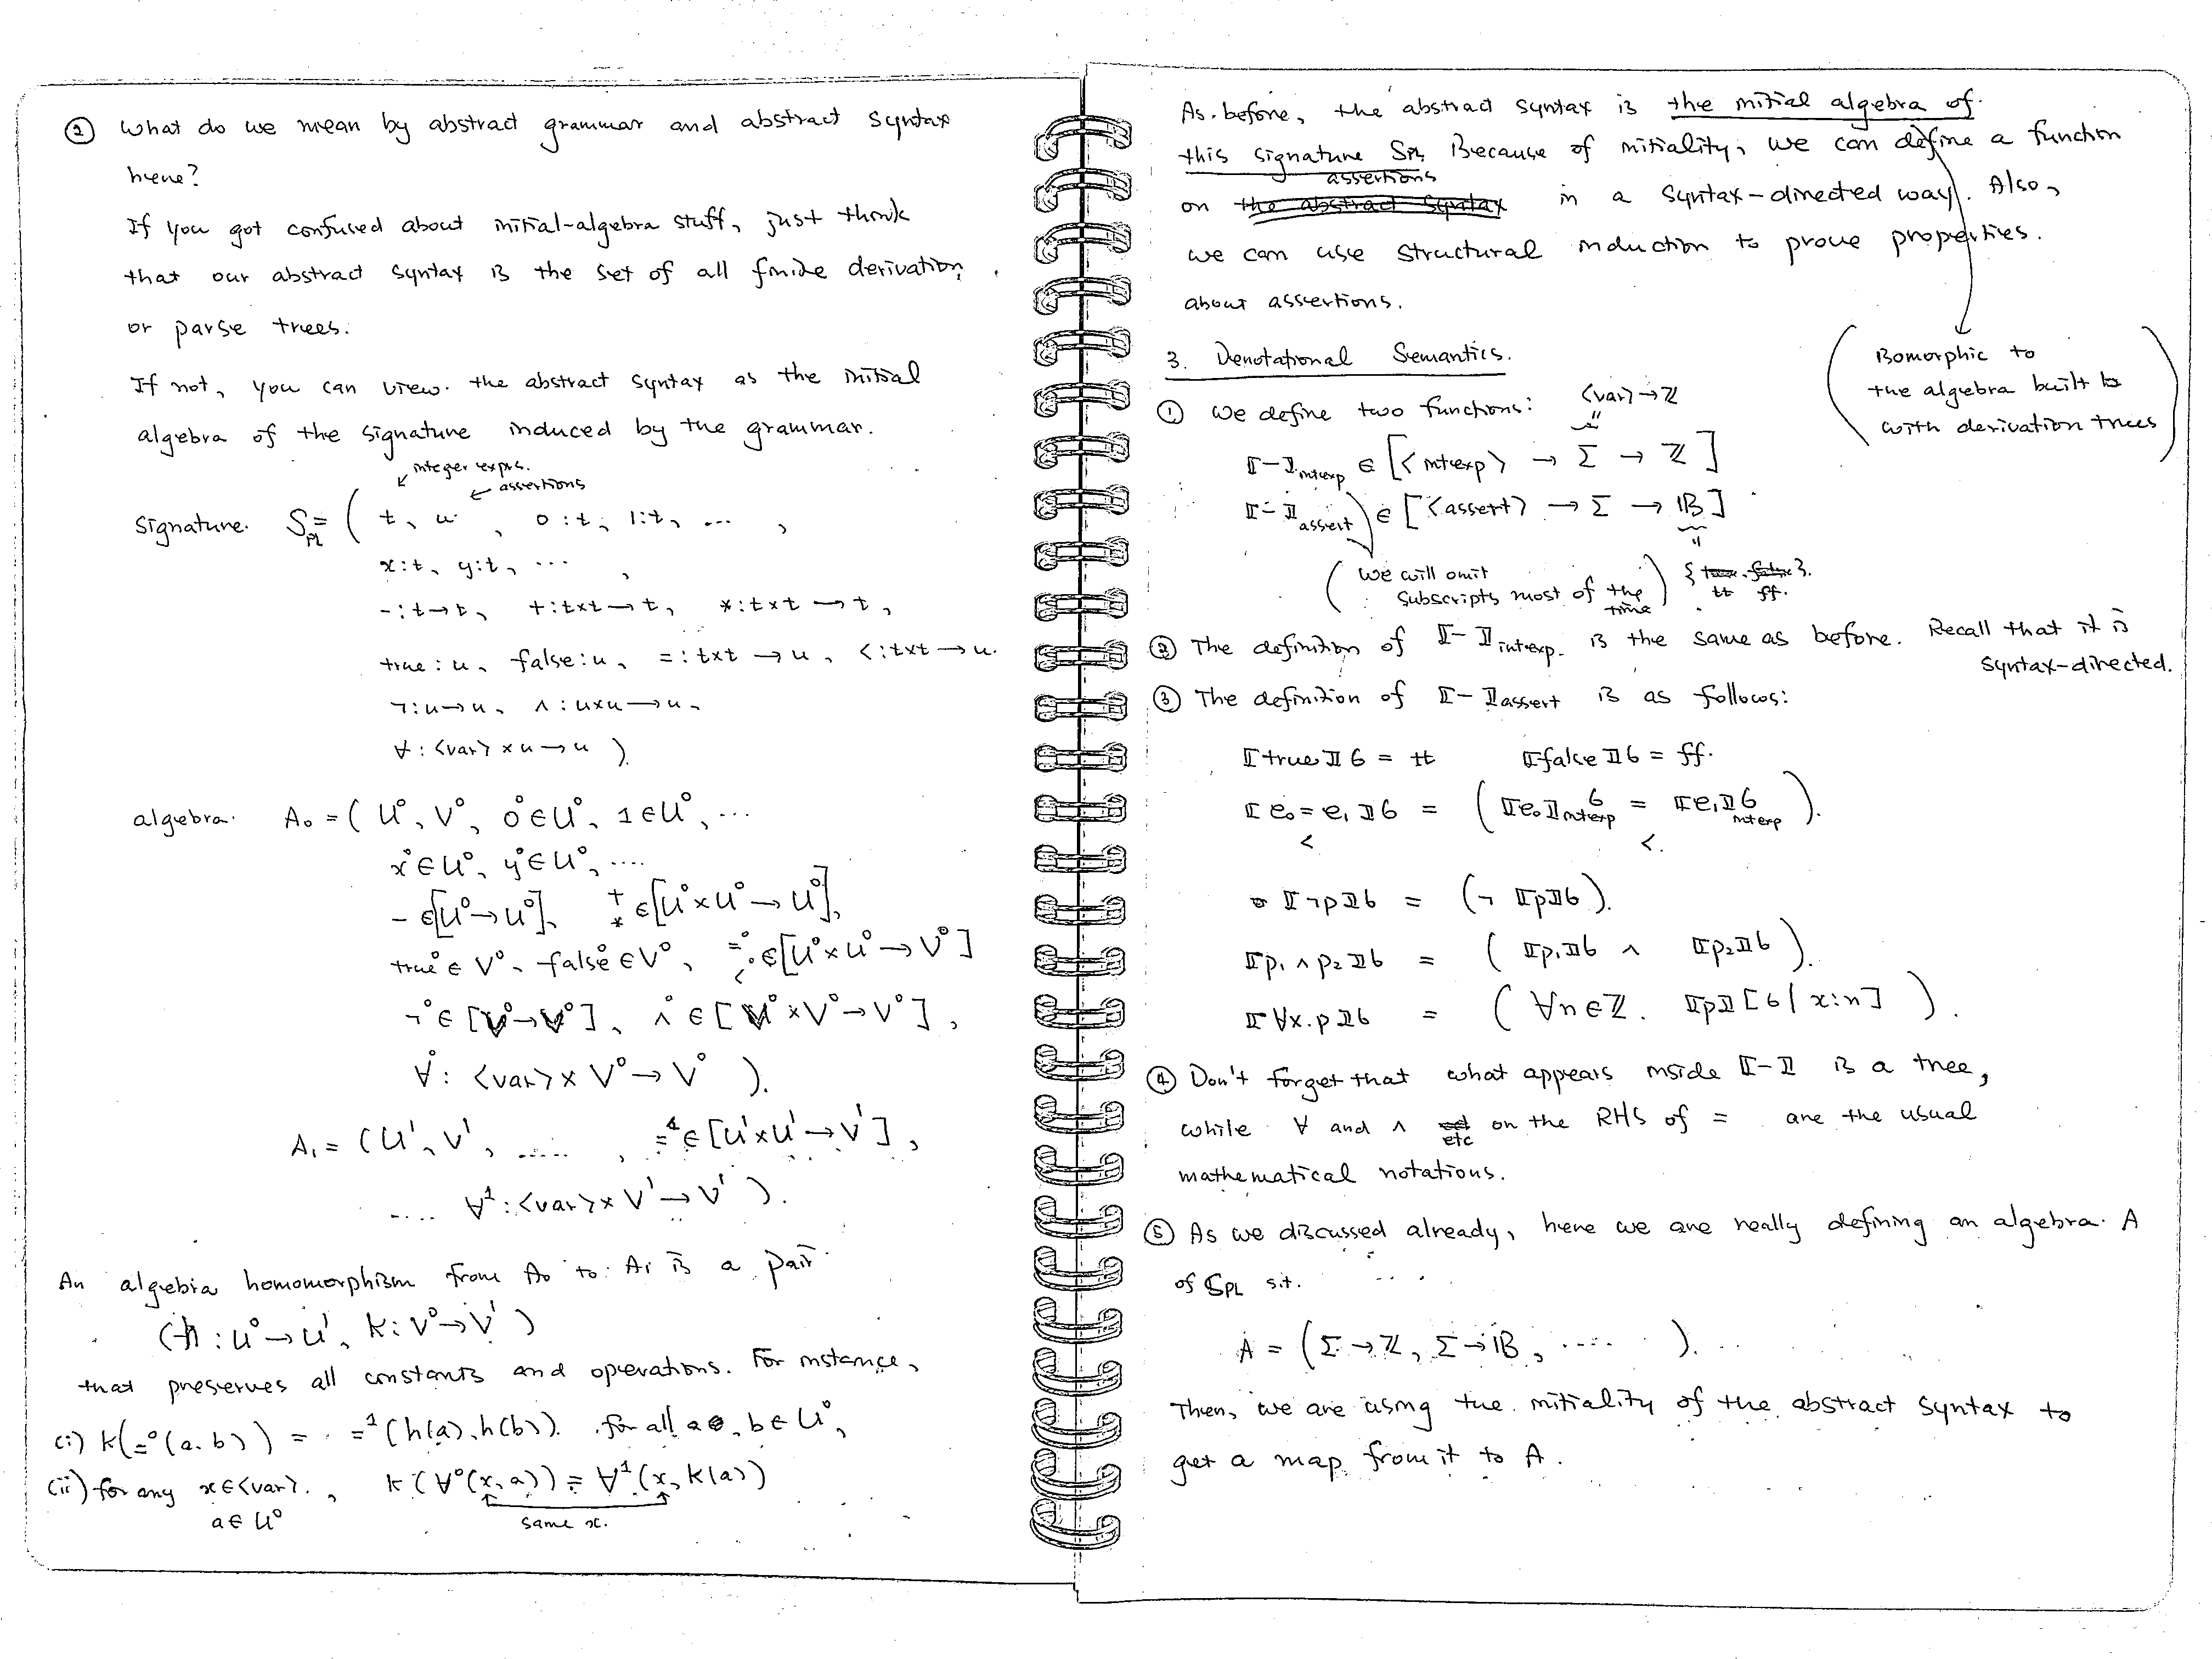 ② What do we mean by abstract grammar and abstract syntax
here?
If you got confused about initial-algebra stuff, just think
that our abstract syntax is the set of all finite derivation
or parse trees.
If not, you can view the abstract syntax as the initial
algebra of the signature induced by the grammar.
integer exprs.
assertions
Signature. S_PL = ( t, u, 0:t, 1:t, ... ,
x:t, y:t, ... ,
-:t→t, +:t×t→t, *:t×t→t,
true:u, false:u, =:t×t→u, <:t×t→u.
¬:u→u, ∧:u×u→u,
∀:<var>×u→u ).
algebra. A₀ = ( U⁰, V⁰, 0⁰∈U⁰, 1∈U⁰, ...
x⁰∈U⁰, y⁰∈U⁰, ....
- ∈[U⁰→U⁰], + * ∈[U⁰×U⁰→U⁰],
true⁰∈V⁰, false⁰∈V⁰, =⁰ < ∈[U⁰×U⁰→V⁰]
¬⁰∈[V⁰→V⁰], ∧⁰∈[V⁰×V⁰→V⁰],
∀⁰: <var>×V⁰→V⁰ ).
A₁ = (U¹, V¹, ..... , =¹∈[U¹×U¹→V¹],
.... ∀¹:<var>×V¹→V¹ ).
An algebra homomorphism from A₀ to A₁ is a pair
(h:U⁰→U¹, k:V⁰→V¹)
that preserves all constants and operations. For instance,
(i) k(=⁰(a,b)) = =¹(h(a),h(b)). for all a, b∈U⁰,
(ii) for any x∈<var>, k(∀⁰(x,a)) = ∀¹(x,k(a))
a∈U⁰
same x.
As before, the abstract syntax is the initial algebra of
this signature S_PL. Because of initiality, we can define a function
assertions
on the abstract syntax in a syntax-directed way. Also,
we can use structural induction to prove properties.
about assertions.
Isomorphic to
the algebra built
with derivation trees
3. Denotational Semantics.
<var>→ℤ
① We define two functions:
⟦-⟧intexp ∈ [<intexp> → Σ → ℤ]
⟦-⟧assert ∈ [<assert> → Σ → 𝔹]
(we will omit
subscripts most of the time)
{true, false}.
tt ff.
② The definition of ⟦-⟧intexp. is the same as before. Recall that it is
syntax-directed.
③ The definition of ⟦-⟧assert is as follows:
⟦true⟧σ = tt ⟦false⟧σ = ff.
⟦e₀=e₁⟧σ = (⟦e₀⟧intexp σ = ⟦e₁⟧intexp σ).
< <.
⟦¬p⟧σ = (¬ ⟦p⟧σ).
⟦p₁∧p₂⟧σ = (⟦p₁⟧σ ∧ ⟦p₂⟧σ).
⟦∀x.p⟧σ = (∀n∈ℤ. ⟦p⟧[σ|x:n]).
④ Don't forget that what appears inside ⟦-⟧ is a tree,
while ∀ and ∧ etc on the RHS of = are the usual
mathematical notations.
⑤ As we discussed already, here we are really defining an algebra A
of S_PL s.t.
A = (Σ→ℤ, Σ→𝔹, .... ).
Then, we are using the initiality of the abstract syntax to
get a map from it to A.